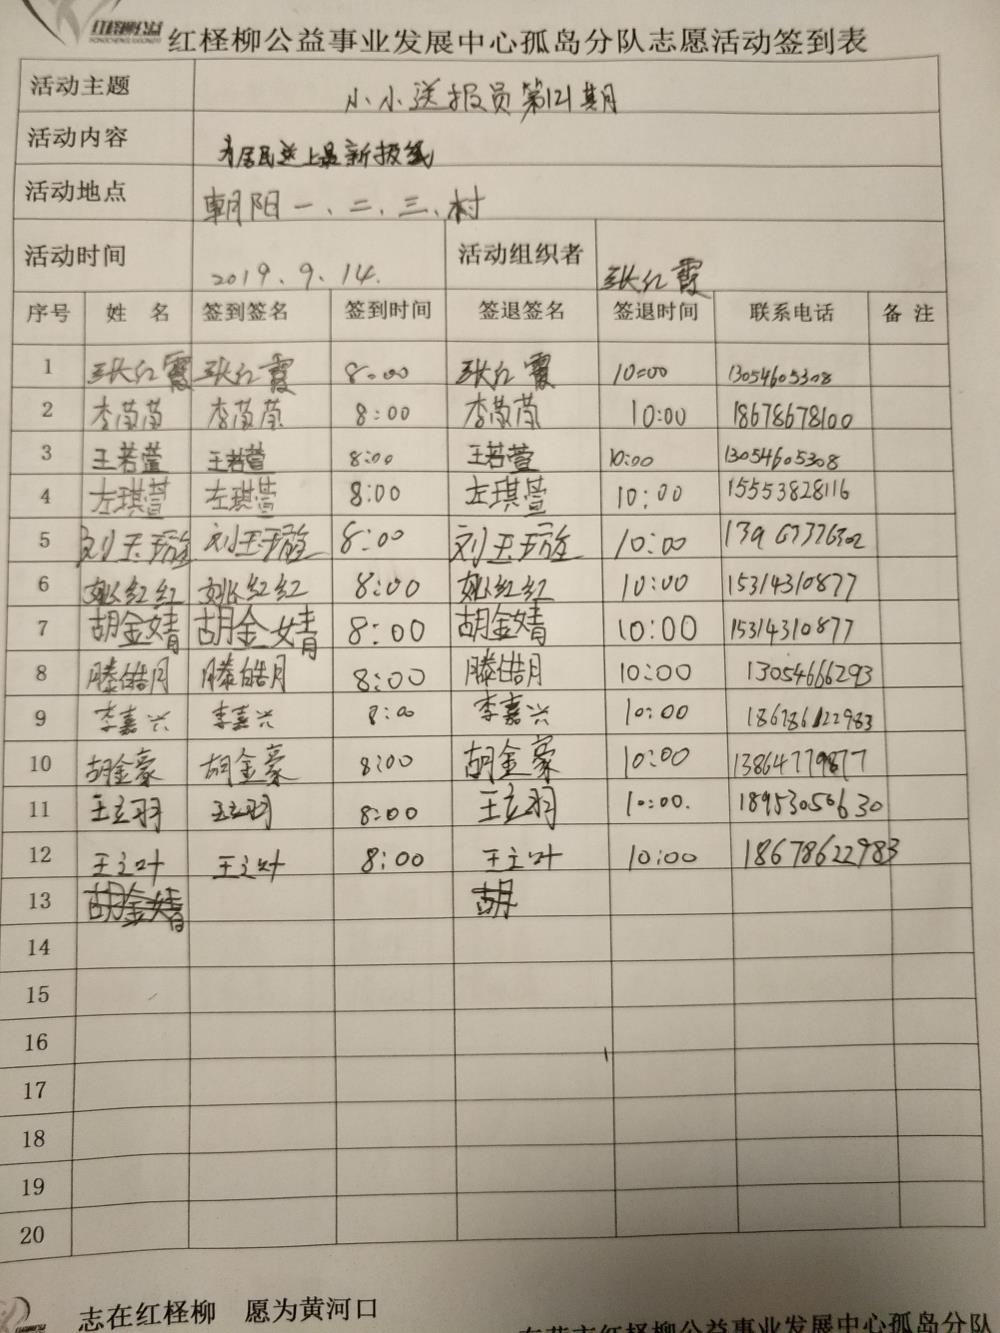 红柽柳公益
红柽柳公益事业发展中心孤岛分队志愿活动签到表
活动主题 小小送报员第121期
活动内容 为居民送上最新报纸
活动地点 朝阳一、二、三、村
活动时间 2019.9.14. 活动组织者 张红霞
序号 姓 名 签到签名 签到时间 签退签名 签退时间 联系电话 备 注
1 张红霞 张红霞 8:00 张红霞 10:00 13054605308
2 李茵茵 李茵茵 8:00 李茵茵 10:00 18678678100
3 王若萱 王若萱 8:00 王若萱 10:00 13054605308
4 左琪萱 左琪萱 8:00 左琪萱 10:00 15553828116
5 刘玉璇 刘玉璇 8:00 刘玉璇 10:00
6 姚红红 姚红红 8:00 姚红红 10:00 15314310877
7 胡金婧 胡金婧 8:00 胡金婧 10:00 15314310877
8 滕皓月 滕皓月 8:00 滕皓月 10:00 13054666293
9 李嘉兴 李嘉兴 8:00 李嘉兴 10:00
10 胡金豪 胡金豪 8:00 胡金豪 10:00 13864779877
11 王立羽 王立羽 8:00 王立羽 10:00. 18953050630
12 王立叶 王立叶 8:00 王立叶 10:00 18678622983
13 胡金婧 胡
14
15
16
17
18
19
20
志在红柽柳 愿为黄河口
东营市红柽柳公益事业发展中心孤岛分队